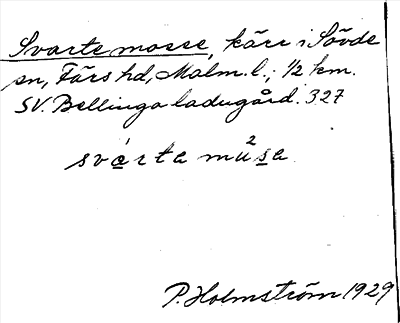 Svarte mosse, kärr i Sövde
sn, Färs hd, Malm. l.; 1/2 km.
SV. Bellinga ladugård. 327
svárta mu²sa
P. Holmström 1929